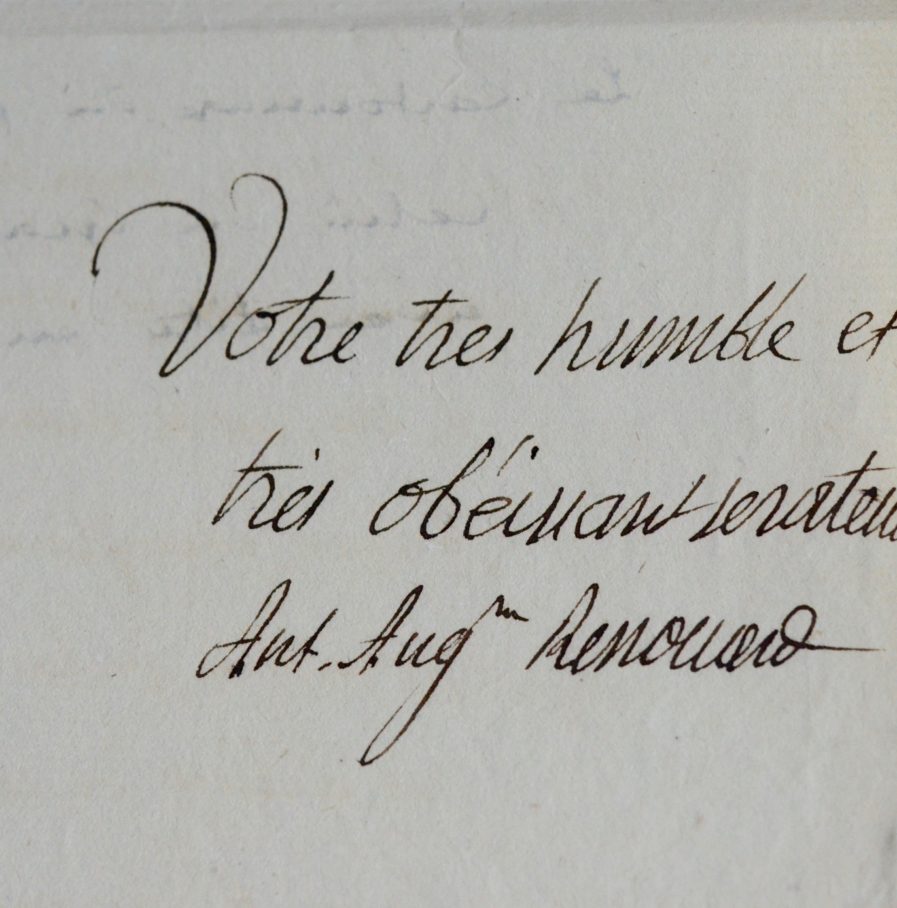 Votre tres humble et
très obéissant serviteu
Ant. Aug^in Renouard